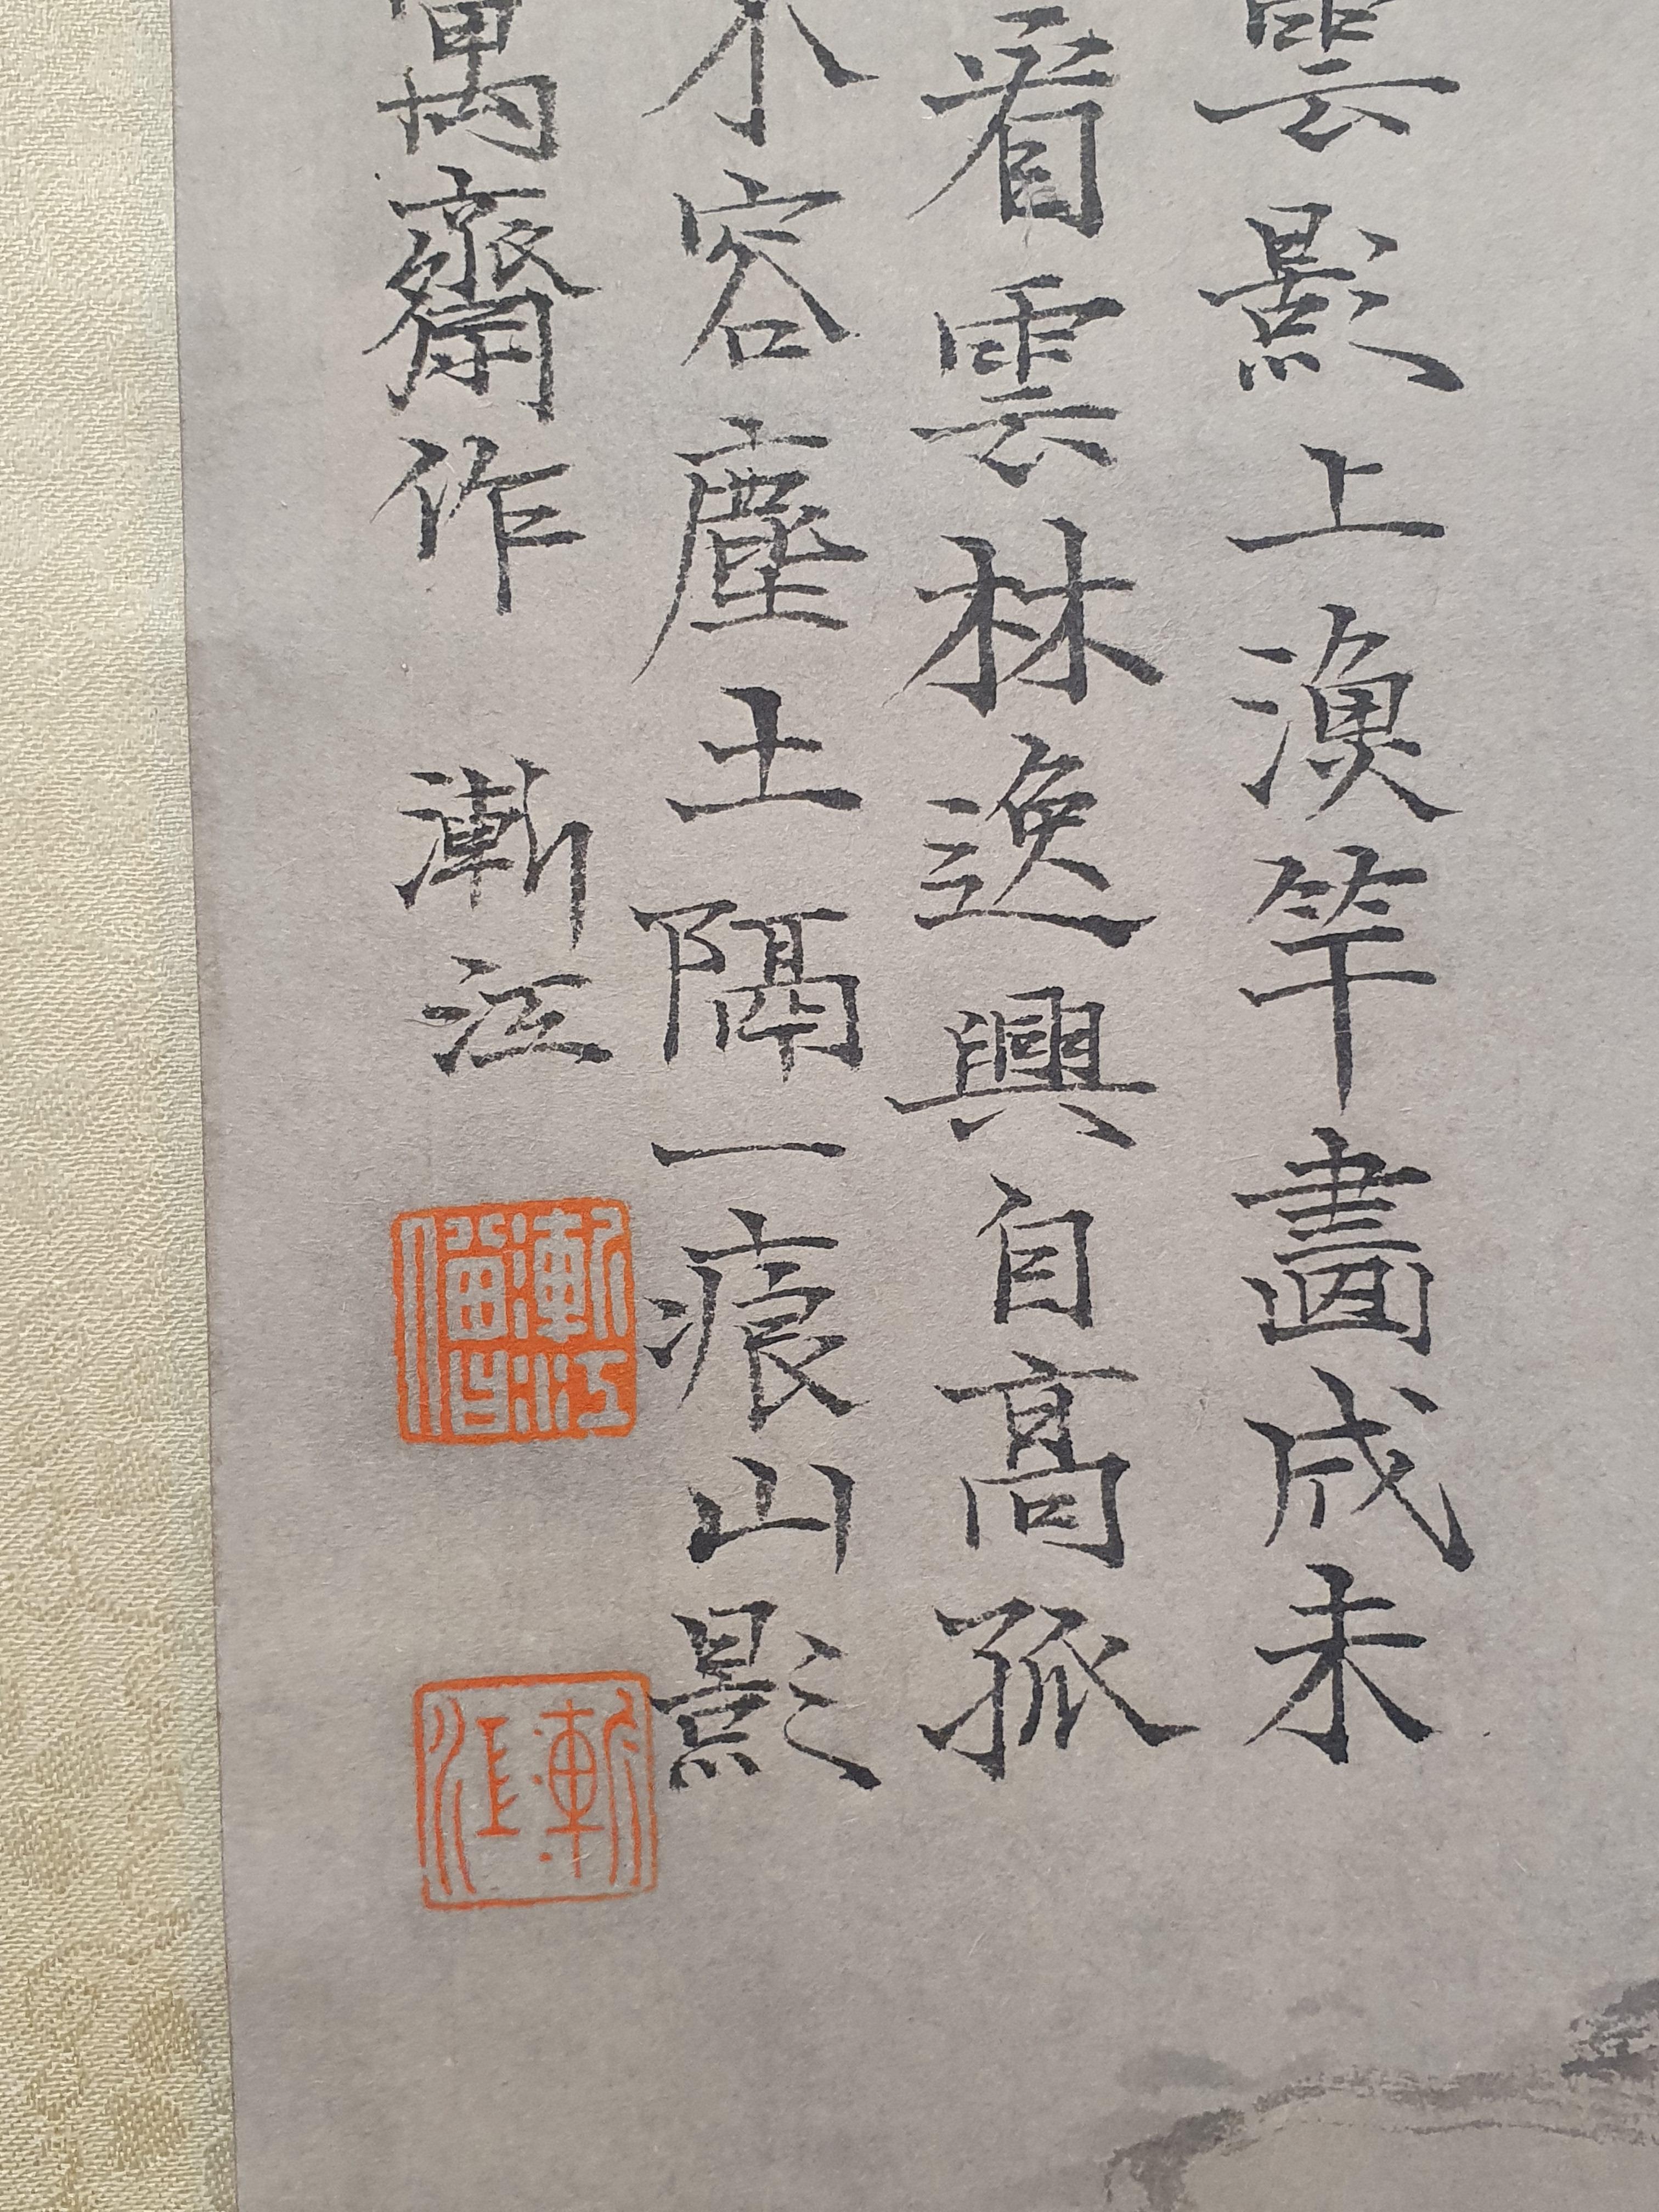 雲影上漁竿畫成未
看雲林逸興自高孤
不容塵土隔一痕山影
齋作 漸江
漸江僧